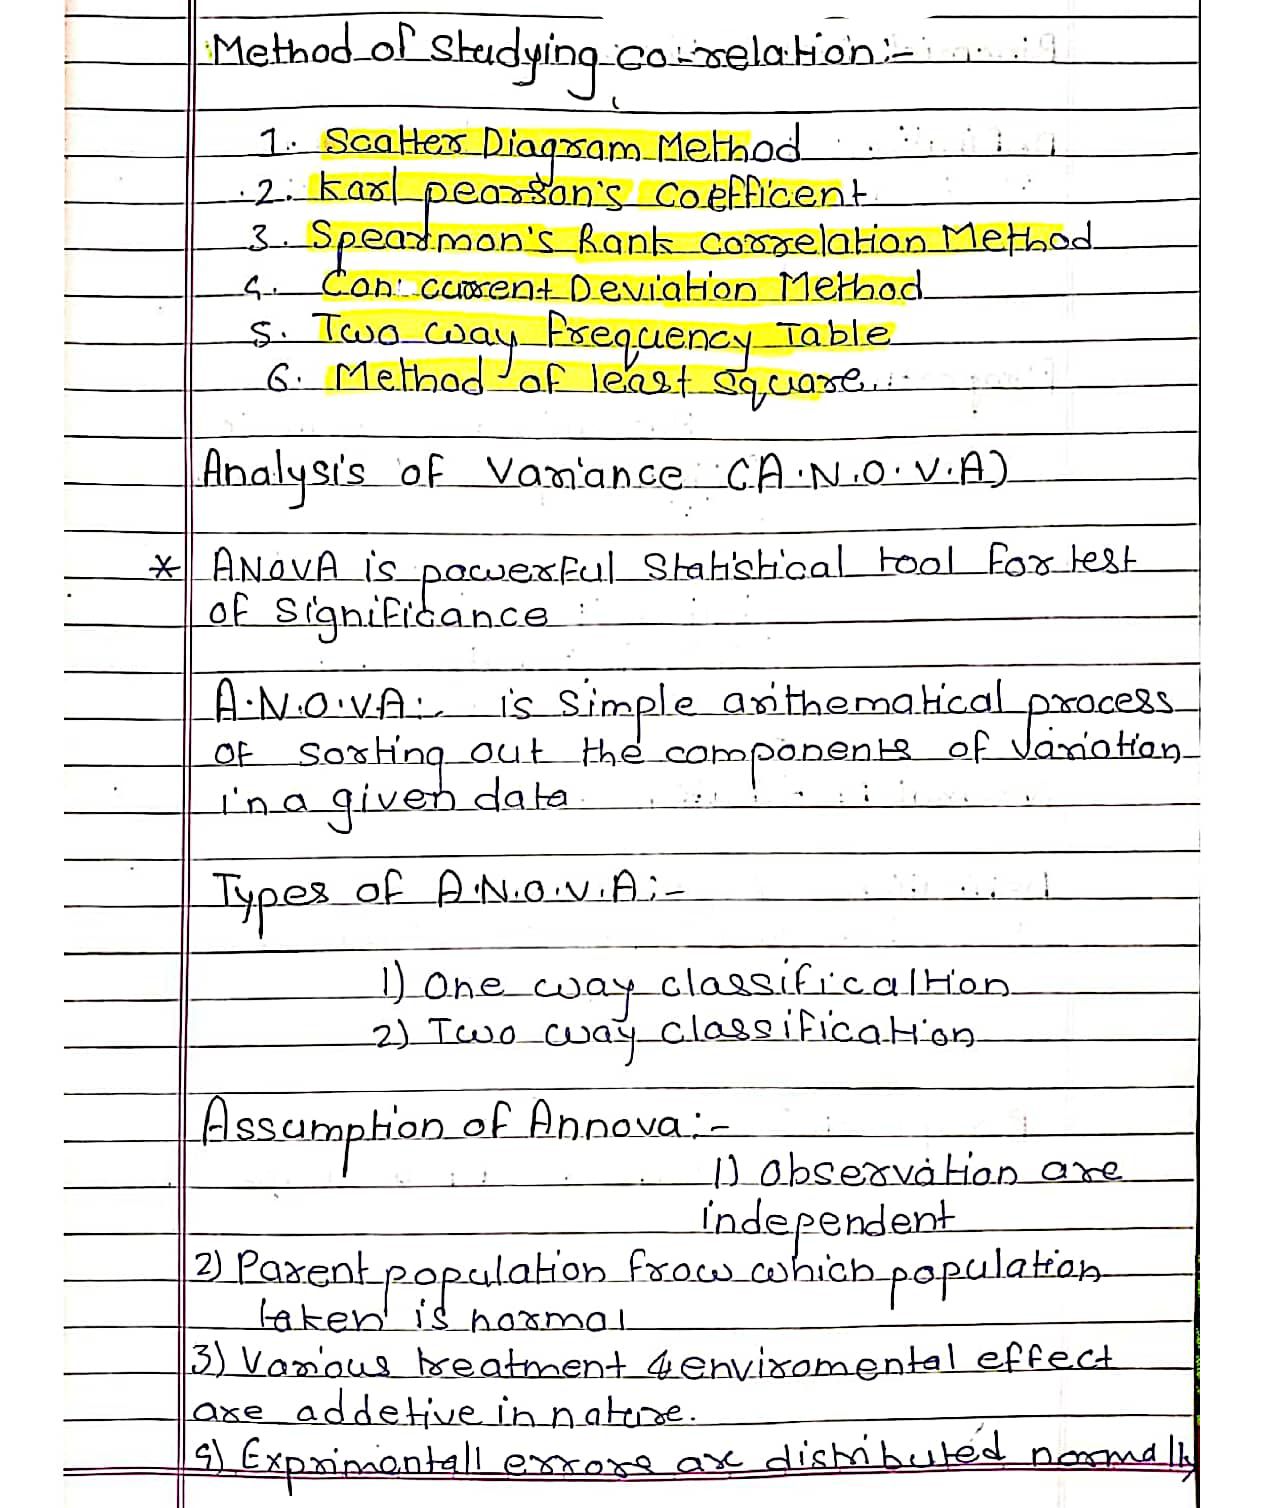 Method of Studying co-relation:-
1. Scatter Diagram Method
2. Karl pearson's coefficent
3. Spearmon's Rank correlation Method
4. Concurrent Deviation Method
5. Two way frequency Table
6. Method of least square
Analysis of Variance (A.N.O.V.A)
* ANOVA is powerful Statistical tool for test
of significance
A.N.O.V.A:- is simple arithematical process
of sorting out the components of variation
in a given data
Types of A.N.O.V.A:-
1) One way classificaltion
2) Two way classification
Assumption of Annova:-
1) observation are
independent
2) Parent population frow which population
taken is normal
3) Various treatment & enviromental effect
are addetive in nature.
4) Exprimantall errors are distributed normally